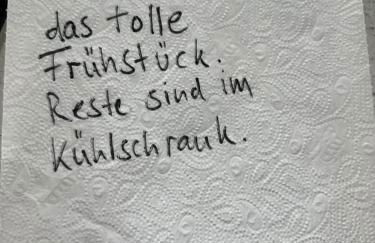 das tolle
Frühstück.
Reste sind im
Kühlschrank.